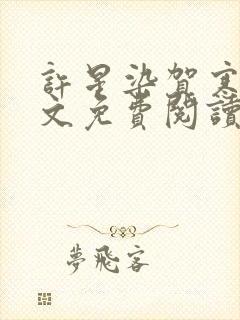 許星染賀寒
文免費閱讀
夢飛客